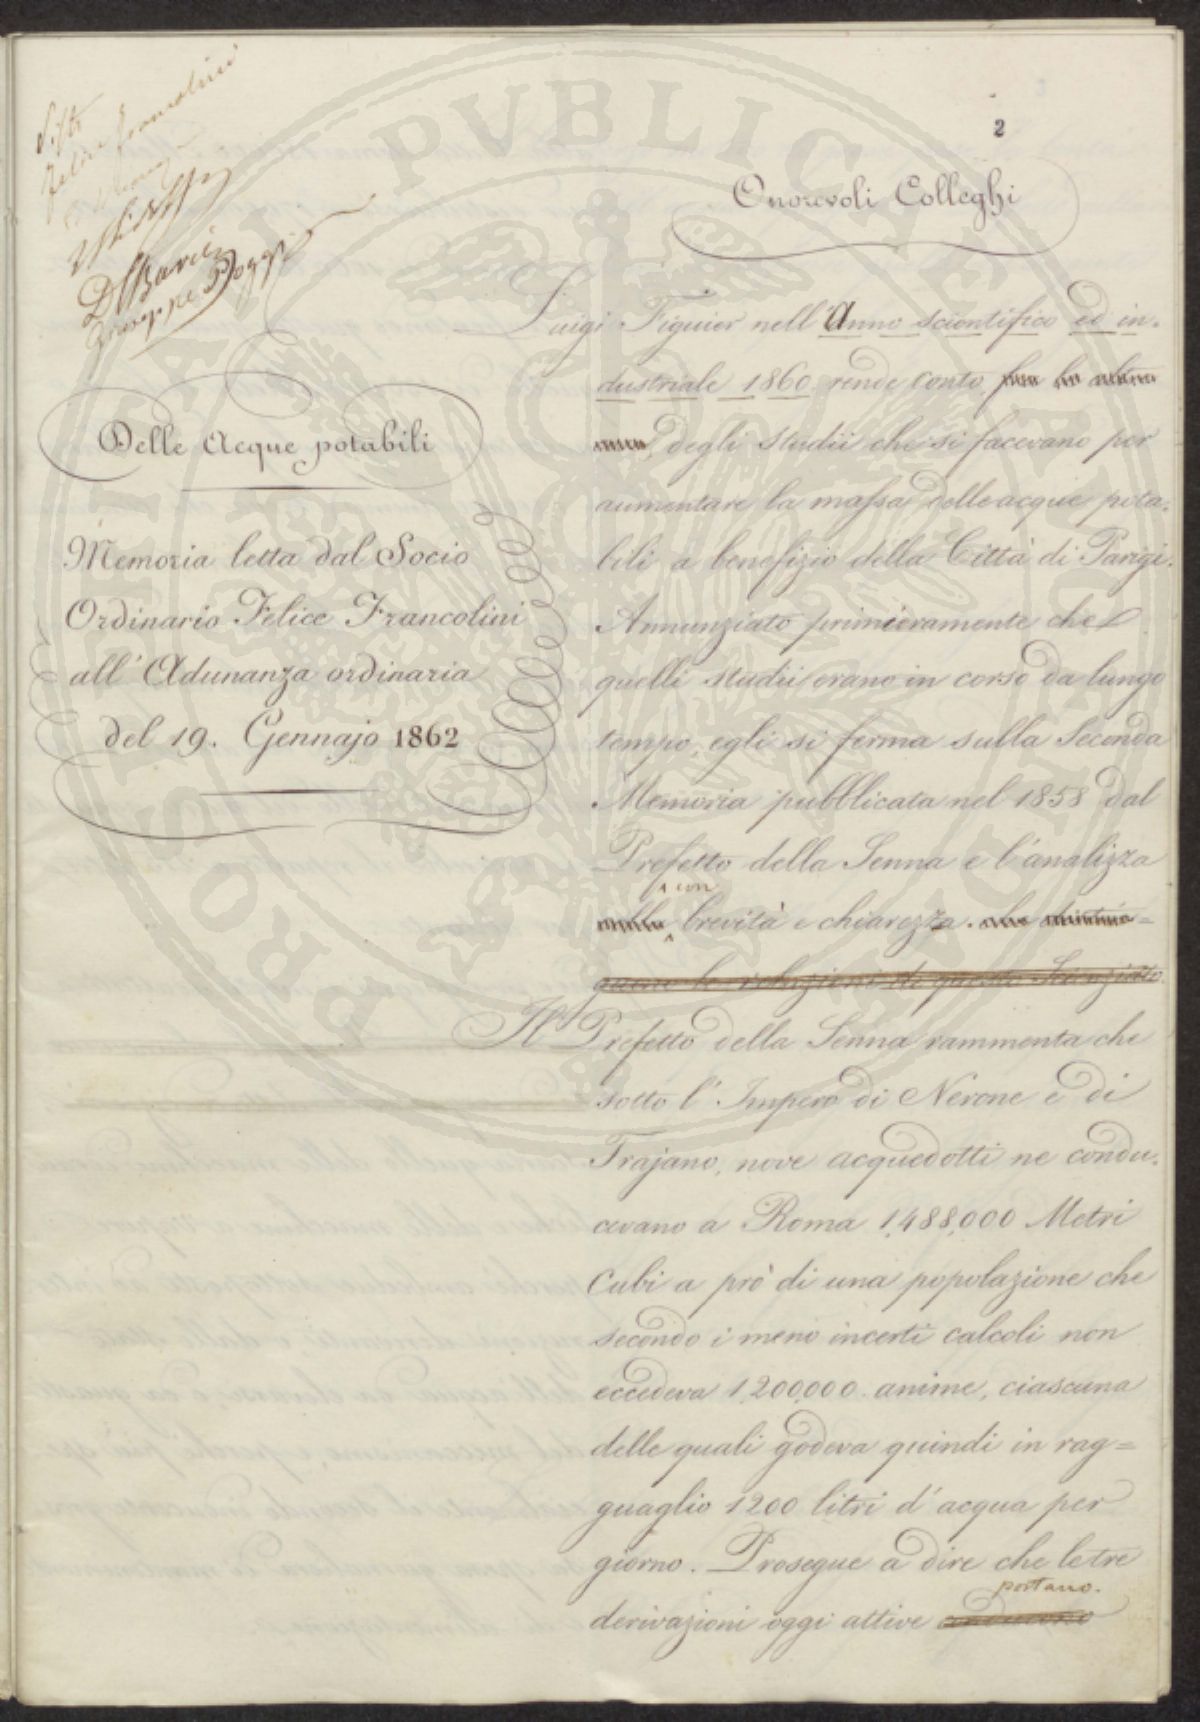 2
Visto
Felice Francolini
Giuseppe Poggi
Delle Acque potabili
Memoria letta dal Socio
Ordinario Felice Francolini
all'Adunanza ordinaria
del 19. Gennajo 1862
Onorevoli Colleghi
Luigi Figuier nell'Anno scientifico ed in-
dustriale 1860 rende conto
degli studii che si facevano per
aumentare la massa delle acque pota-
bili a benefizio della Città di Parigi.
Annunziato primieramente che
quelli studii erano in corso da lungo
tempo, egli si ferma sulla Seconda
Memoria pubblicata nel 1858 dal
Prefetto della Senna e l'analizza
con
brevità e chiarezza.
Il Prefetto della Senna rammenta che
sotto l'Impero di Nerone e di
Trajano, nove acquedotti ne condu-
cevano a Roma 1,488,000 Metri
Cubi a prò di una popolazione che
secondo i meno incerti calcoli non
eccedeva 1,200,000 anime, ciascuna
delle quali godeva quindi in rag=
guaglio 1200 litri d'acqua per
giorno. Prosegue a dire che le tre
portano.
derivazioni oggi attive conducono